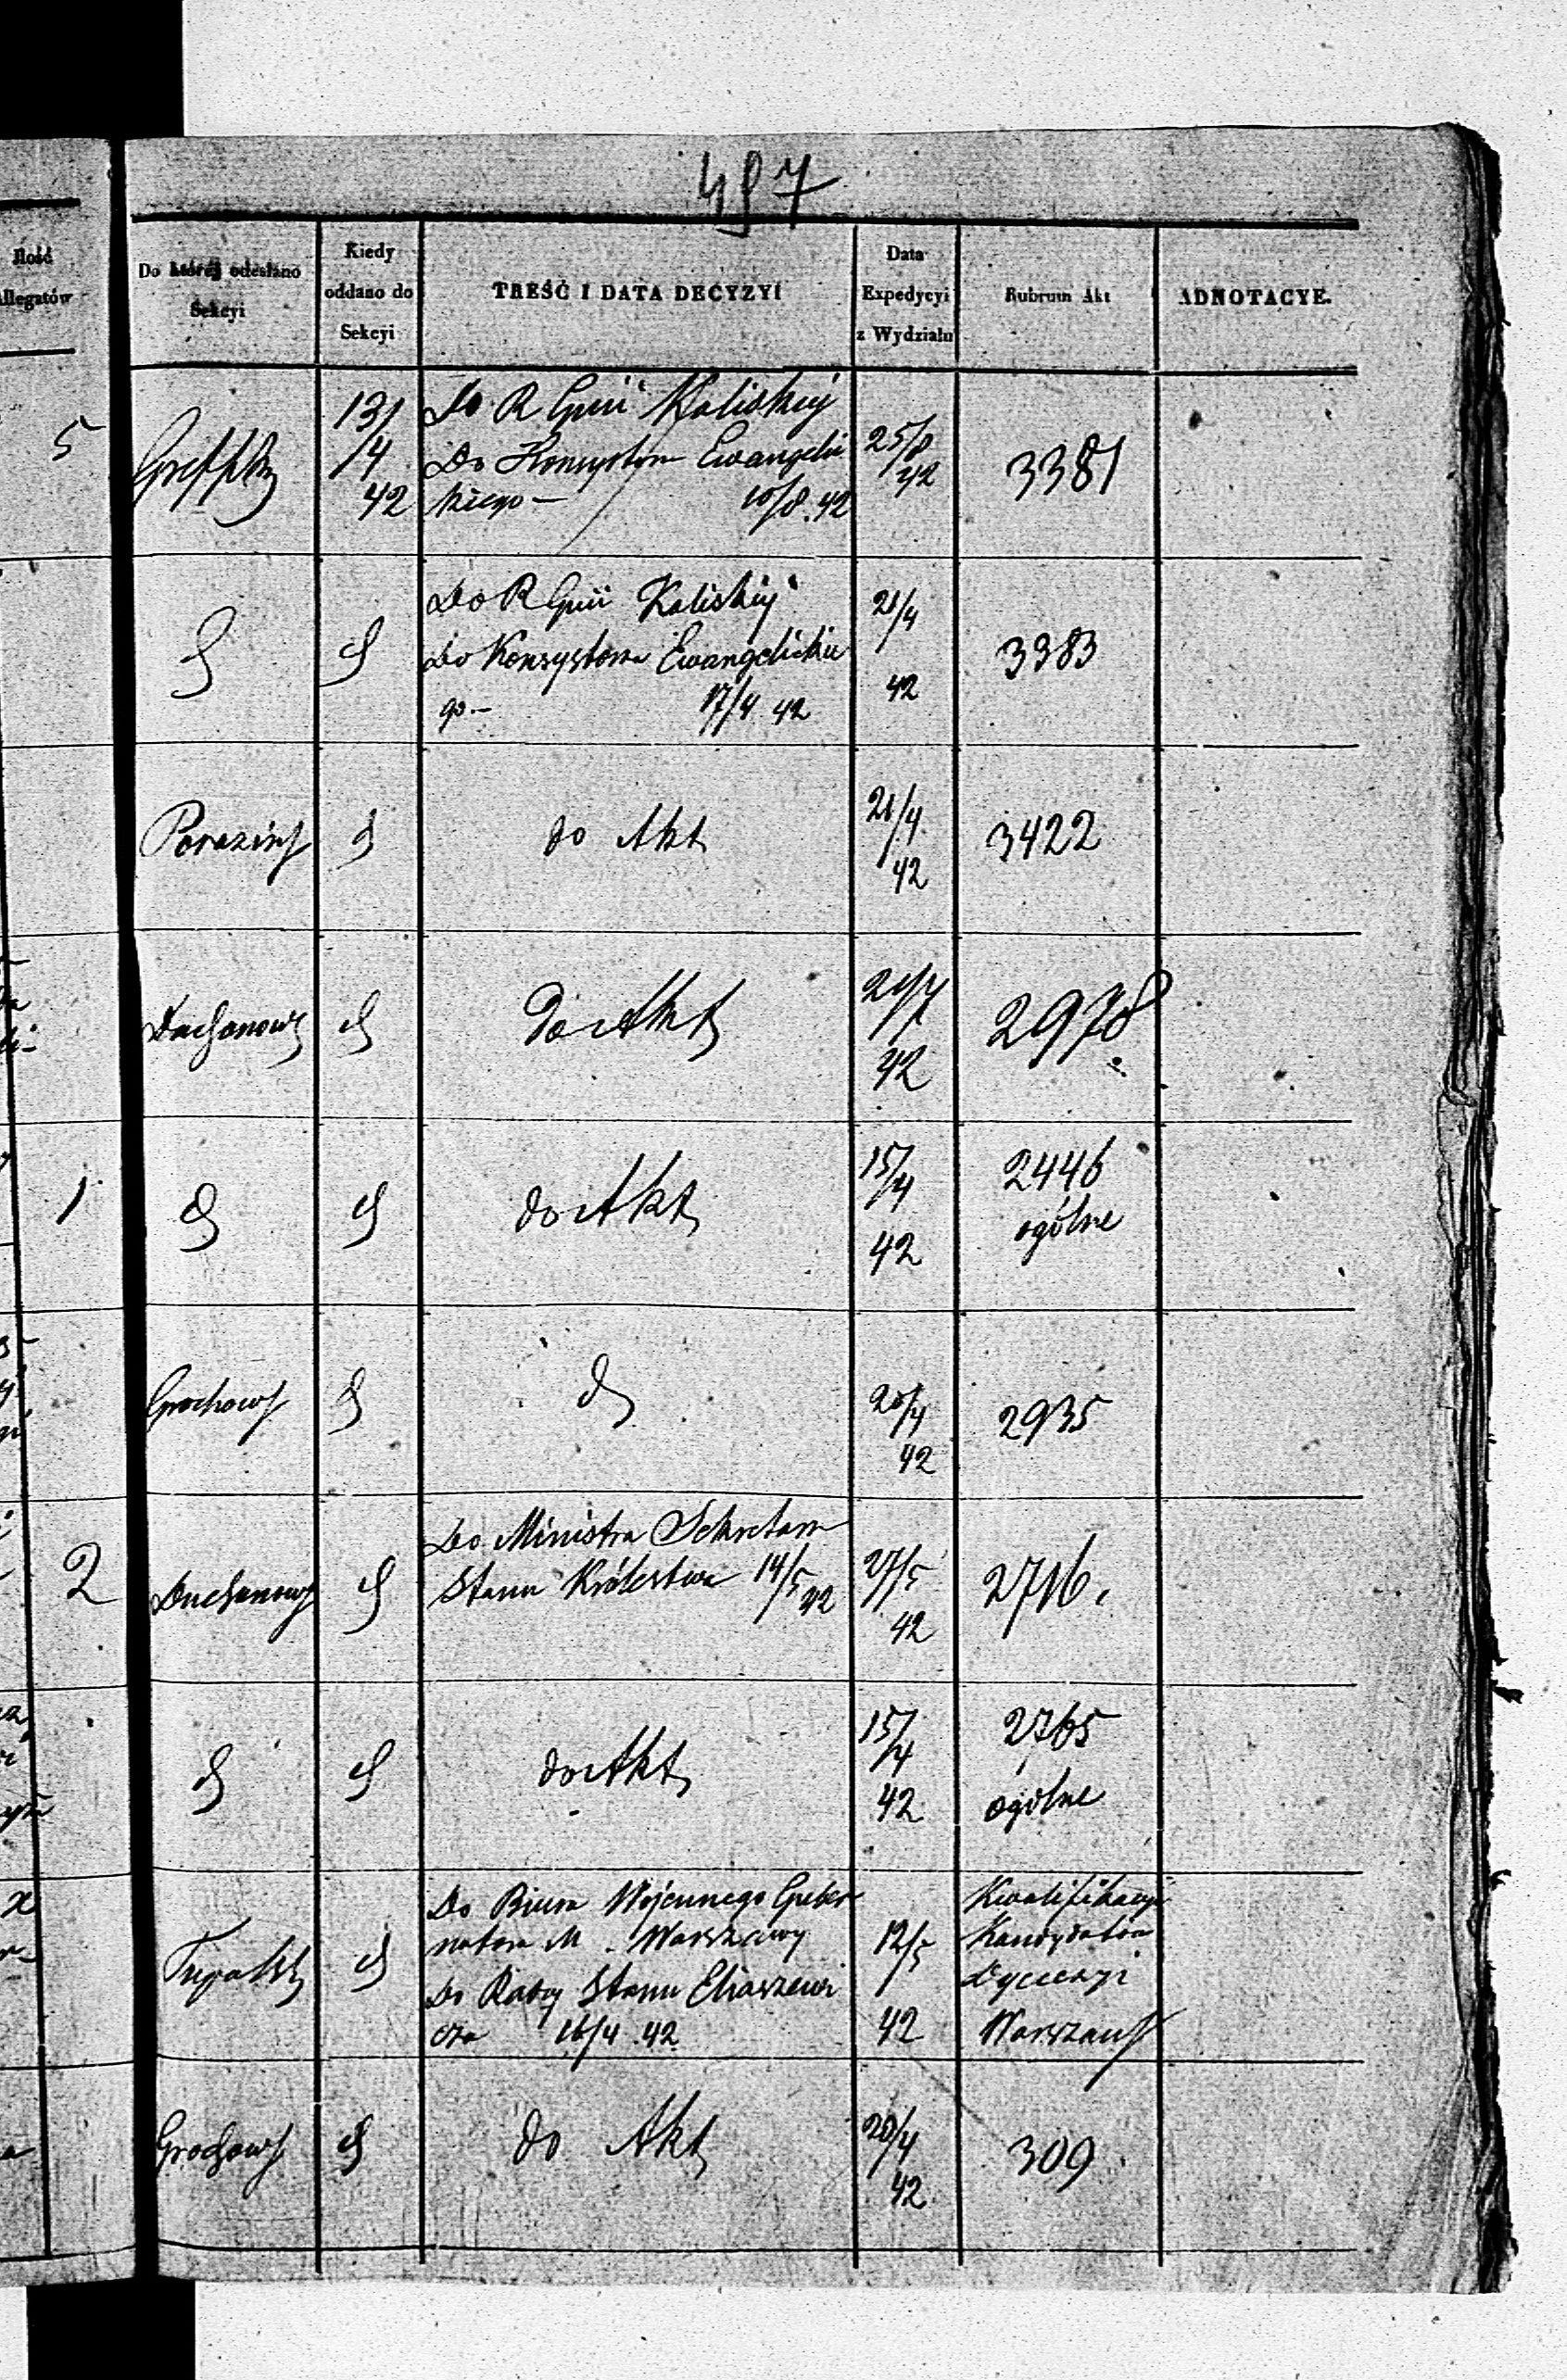 497
Ilość
Allegatów
Do której odesłano
Sekcyi
Kiedy
oddano do
Sekcyi
TREŚĆ I DATA DECYZYI
Data
Expedycyi
z Wydziału
Rubrum Akt
ADNOTACYE.
5
13/
/4
42
Do R Gnii Kaliskiej
Do Konsystorza Ewangelic
kiego — 10/8. 42
25/8
42
3381
d
d
Do R Gnii Kaliskiej
do Konsystorza Ewangelickie
go.— 17/4 42
21/4
42
3383
Porazińs
d
do Akt
21/4
42
3422
Duchanows
d
do Akt
21/4
42
2978
1
d
d
do Akt
15/4
42
2446
ogólne
Grochows
d
d
20/4
42
2935
2
Duchanows
d
Do Ministra Sekretarza
Stanu Królestwa 14/5 42
27/5
42
2716.
d
d
do Akt
15/4
42
2765
ogólne
d
Do Biura Wojennego Guber
natora M. Warszawy
Do Radcy Stanu Eliaszewi
cza 16/4 .42
12/5
42
Kwalifikacyi
Kandydatów
Dyecezyi
Warszaws
Grochows
d
do Akt
20/4
42
309